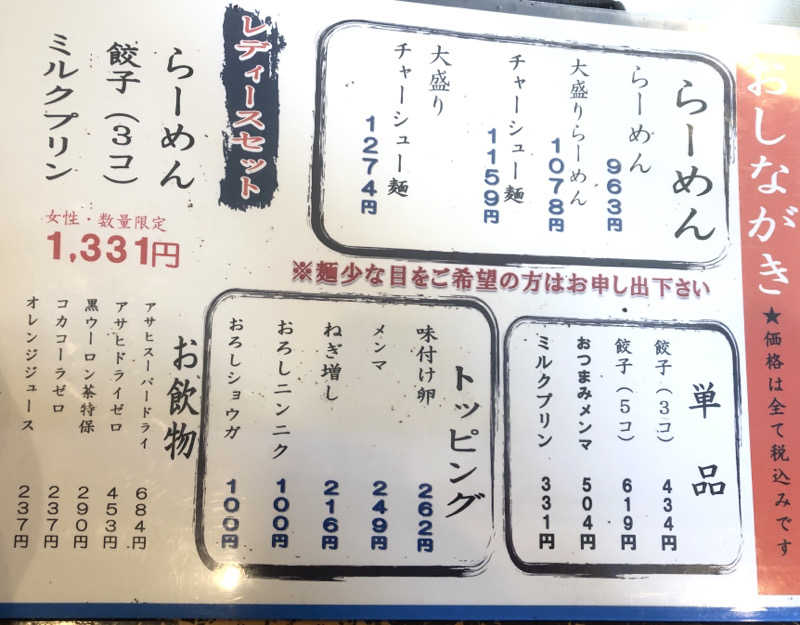 おしながき
★価格は全て税込みです
らーめん
らーめん 963円
大盛りらーめん 1078円
チャーシュー麺 1159円
大盛り
チャーシュー麺 1274円
※麺少な目をご希望の方はお申し出下さい
単品
餃子(3コ) 434円
餃子(5コ) 619円
おつまみメンマ 504円
ミルクプリン 331円
トッピング
味付け卵 262円
メンマ 249円
ねぎ増し 216円
おろしニンニク 100円
おろしショウガ 100円
レディースセット
らーめん
餃子(3コ)
ミルクプリン
女性・数量限定
1,331円
お飲物
アサヒスーパードライ 684円
アサヒドライゼロ 453円
黒ウーロン茶特保 290円
コカコーラゼロ 237円
オレンジジュース 237円